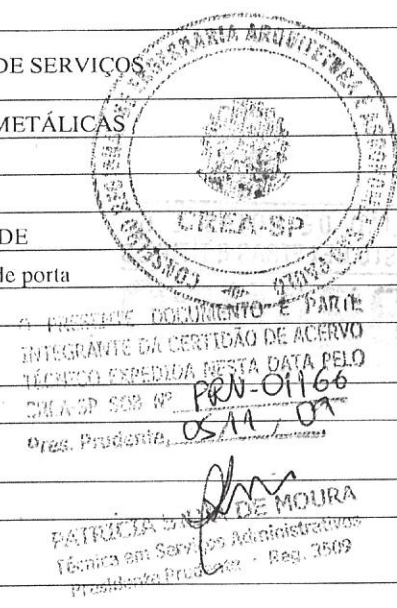 DE SERVIÇOS
METÁLICAS
ENGENHARIA ARQUITETURA E AGRONOMIA
CREA-SP
CONSELHO
DE
de porta
O PRESENTE DOCUMENTO É PARTE
INTEGRANTE DA CERTIDÃO DE ACERVO
TÉCNICO EXPEDIDA NESTA DATA PELO
CREA-SP SOB Nº PRN-01166
Pres. Prudente, 05, 11, 07
PATRÍCIA DE MOURA
Técnica em Serviços Administrativos
Presidente Prudente - Reg. 3509